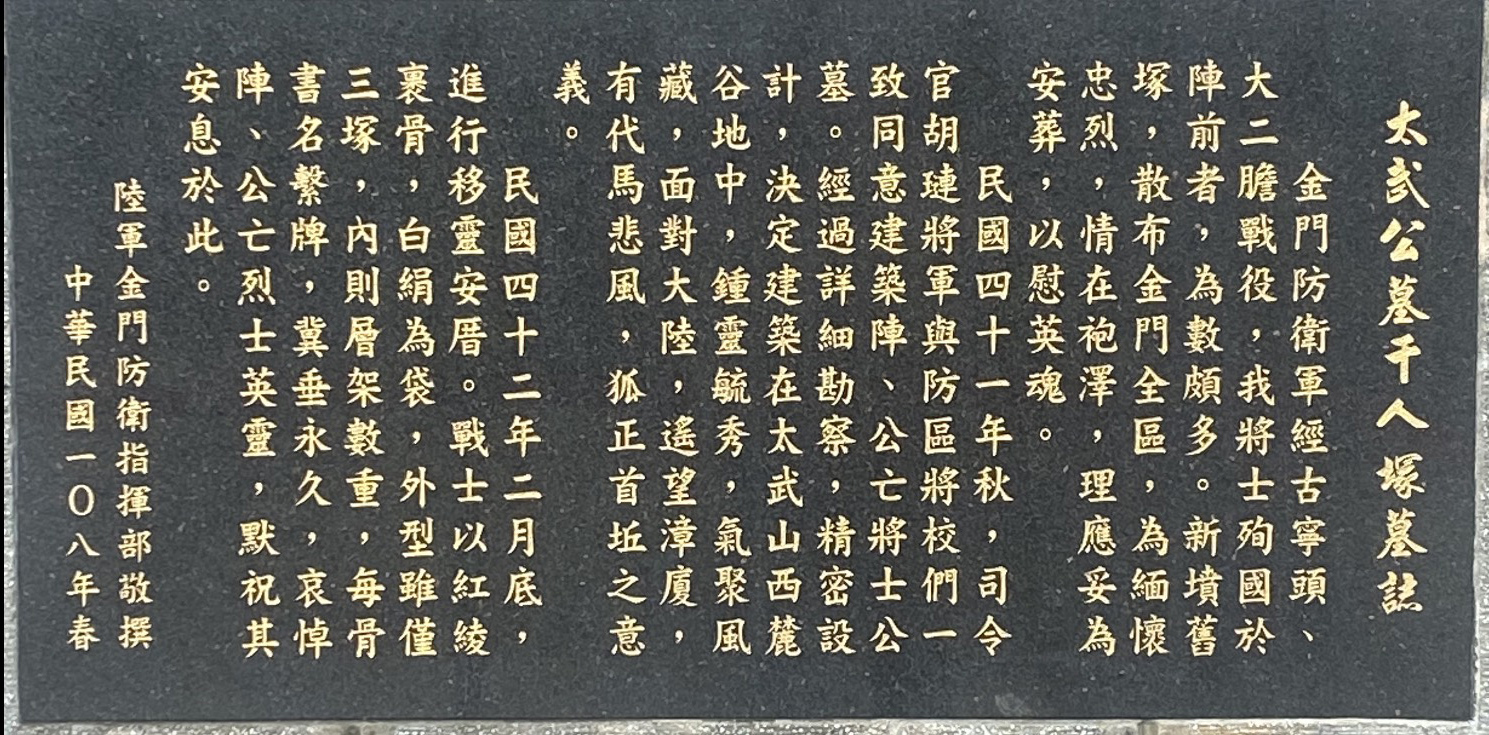 太武公墓千人塚墓誌
金門防衛軍經古寧頭、
大二膽戰役，我將士殉國於
陣前者，為數頗多。新墳舊
塚，散布金門全區，為緬懷
忠烈，情在袍澤，理應妥為
安葬，以慰英魂。
民國四十一年秋，司令
官胡璉將軍與防區將校們一
致同意建築陣、公亡將士公
墓。經過詳細勘察，精密設
計，決定建築在太武山西麓
谷地中，鍾靈毓秀，氣聚風
藏，面對大陸，遙望漳廈，
有代馬悲風，狐正首坵之意
義。
民國四十二年二月底，
進行移靈安厝。戰士以紅綾
裹骨，白絹為袋，外型雖僅
三塚，內則層架數重，每骨
書名繫牌，冀垂永久，哀悼
陣、公亡烈士英靈，默祝其
安息於此。
陸軍金門防衛指揮部敬撰
中華民國一０八年春